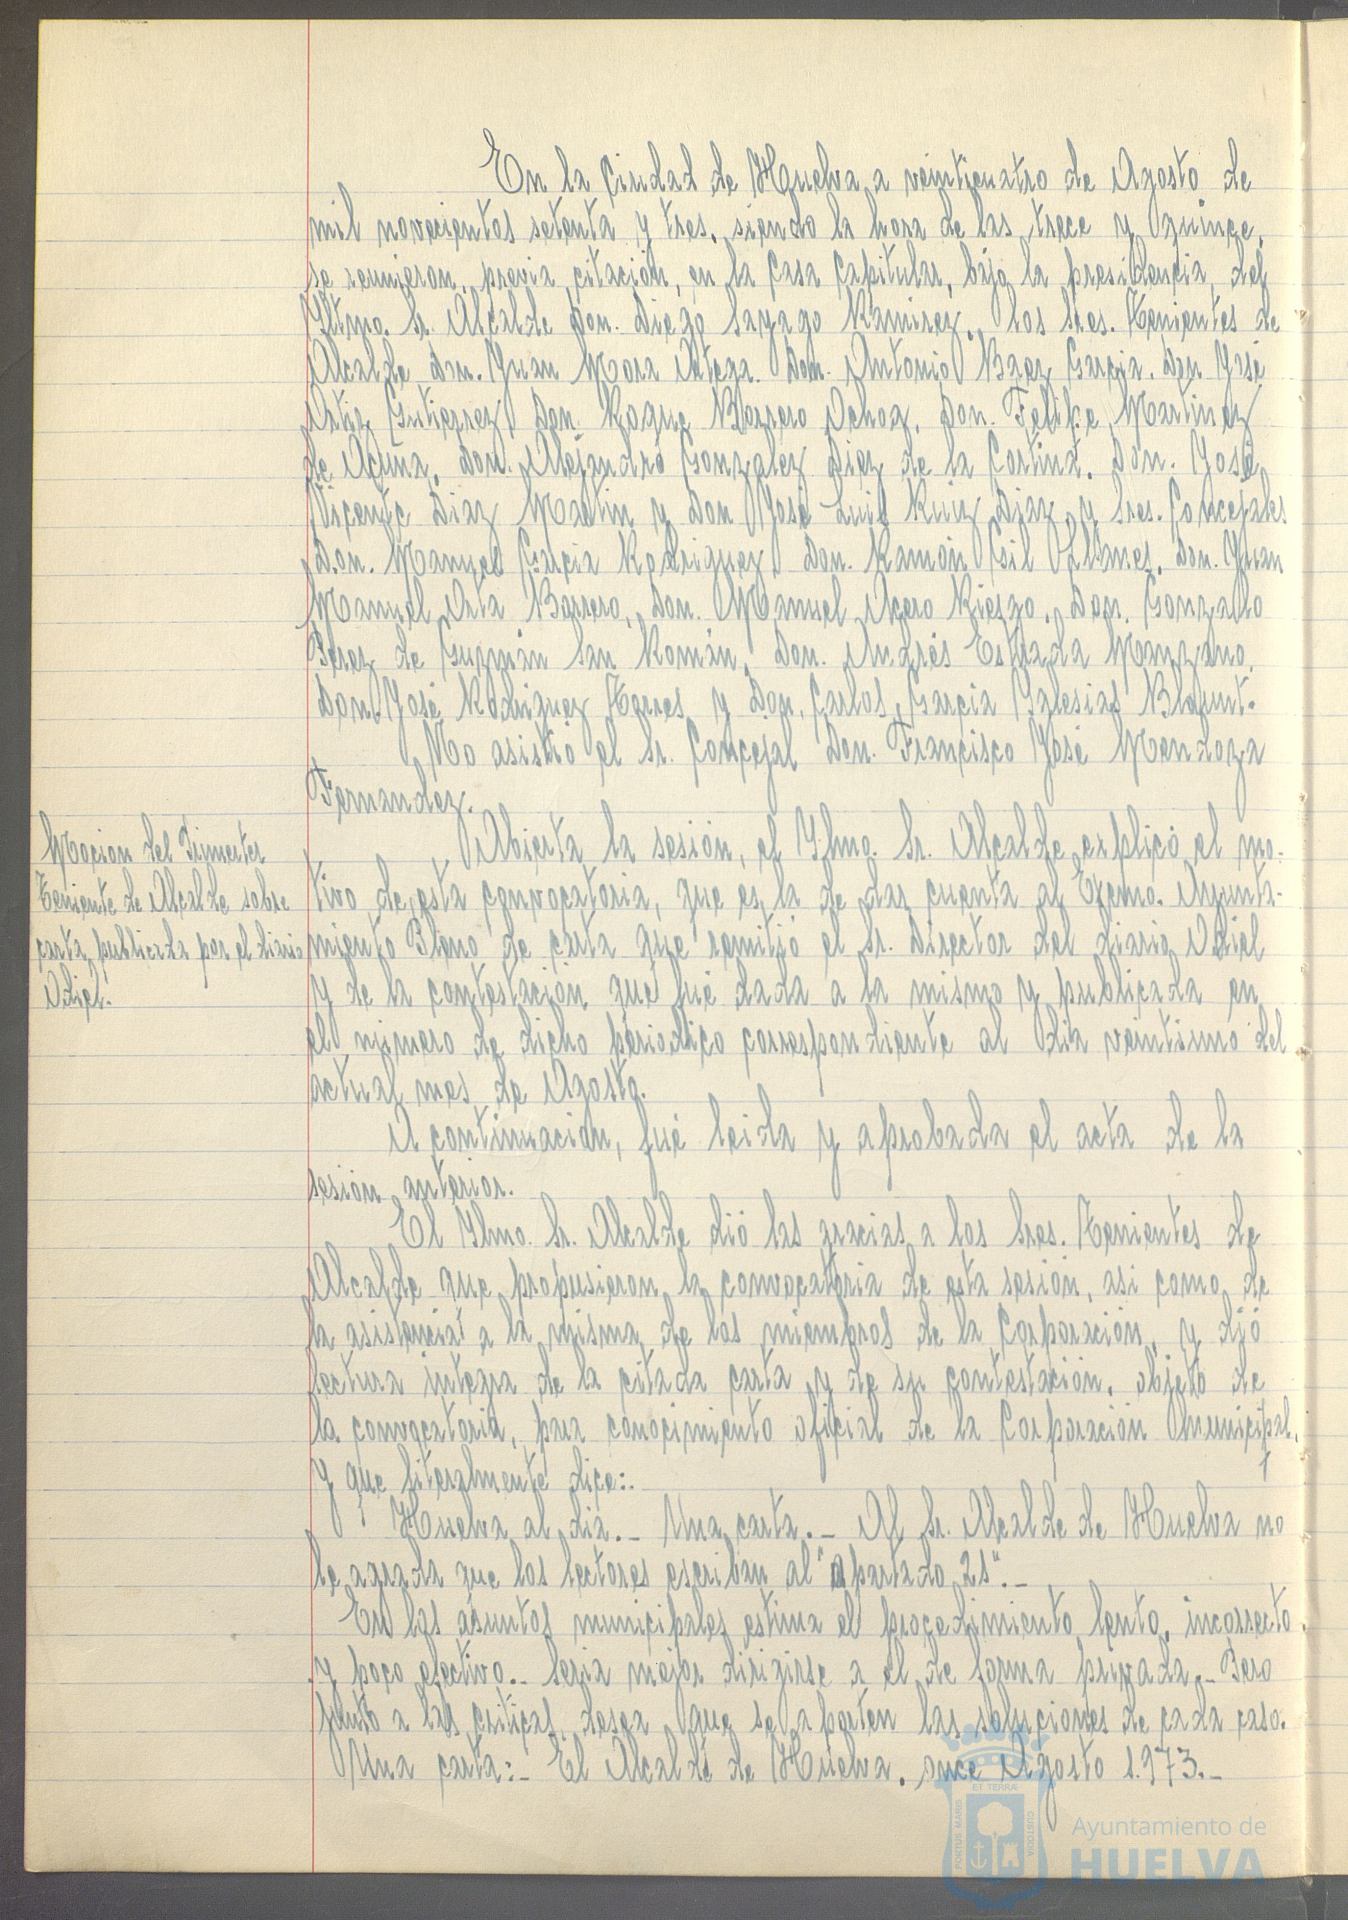 En la Ciudad de Huelva a veinticuatro de Agosto de
mil novecientos setenta y tres, siendo la hora de las trece y quince,
se reunieron, previa citación, en la Casa Capitular, bajo la presidencia del
Iltmo. Sr. Alcalde Don. Diego Sayago Ramirez, los Sres. Tenientes de
Alcalde don. Juan Mora Ortega. Don. Antonio Baez Garcia. don José
Ortiz Gutierrez, Don. Roque Borrero Ochoa, Don. Felipe Martinez
de Acuña, don. Alejandro Gonzalez Diez de la Cortina. Don. José
Vicente Diaz Martin y Don José Luis Ruiz Diaz y Sres. Concejales
Don. Manuel Garcia Rodriguez, don. Ramón Gil Llanes, don. Juan
Manuel Orta Borrero, Don. Manuel Acero Riesgo, Don. Gonzalo
Perez de Guzmán San Román, Don. Andrés Estrada Manzano,
Don. José Rodriguez Torres y Don. Carlos Garcia Iglesias Blount.
No asistió el Sr. Concejal Don. Francisco José Mendoza
Fernandez.
Mocion del Teniente de Alcalde sobre
carta publicada por el diario
Odiel.
Abierta la sesión, el Ilmo. Sr. Alcalde explicó el mo-
tivo de esta convocatoria, que es la de dar cuenta al Excmo. Ayunta-
miento Pleno de carta que remitió el Sr. Director del diario Odiel
y de la contestación que fué dada a la mismo y publicada en
el numero de dicho periodico correspondiente al dia veintiuno del
actual mes de Agosto.
A continuacion, fué leida y aprobada el acta de la
sesión anterior.
El Ilmo. Sr. Alcalde dió las gracias a los Sres. Tenientes de
Alcalde que propusieron la convocatoria de esta sesión, asi como de
la asistencia a la misma de los miembros de la Corporación, y dió
lectura integra de la citada carta y de su contestación, objeto de
la convocatoria, para conocimiento oficial de la Corporación Municipal,
y que literalmente dice:.
Huelva al dia.- Una carta.- Al Sr. Alcalde de Huelva no
le agrada que los lectores escriban al "apartado 21".-
En los asuntos municipales estima el procedimiento lento, incorrecto
y poco efectivo.- Seria mejor dirigirse a el de forma privada.- Pero
junto a las criticas, desea que se aporten las soluciones de cada caso.
Una carta:- El Alcalde de Huelva, once Agosto 1.973.-
PORTUS MARIS
ET TERRÆ
CUSTODIA
Ayuntamiento de
HUELVA